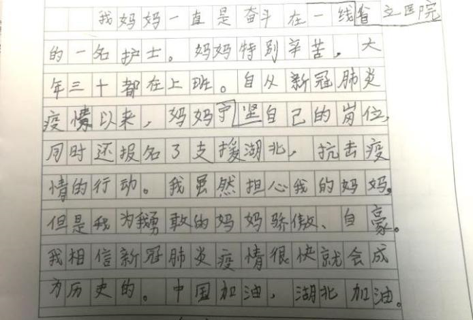 我妈妈一直是奋斗在一线省立医院
的一名护士。妈妈特别辛苦，大
年三十都在上班。自从新冠肺炎
疫情以来，妈妈坚守自己的岗位，
同时还报名了支援湖北，抗击疫
情的行动。我虽然担心我的妈妈。
但是我为我勇敢的妈妈骄傲、自豪。
我相信新冠肺炎疫情很快就会成
为历史的。中国加油，湖北加油。